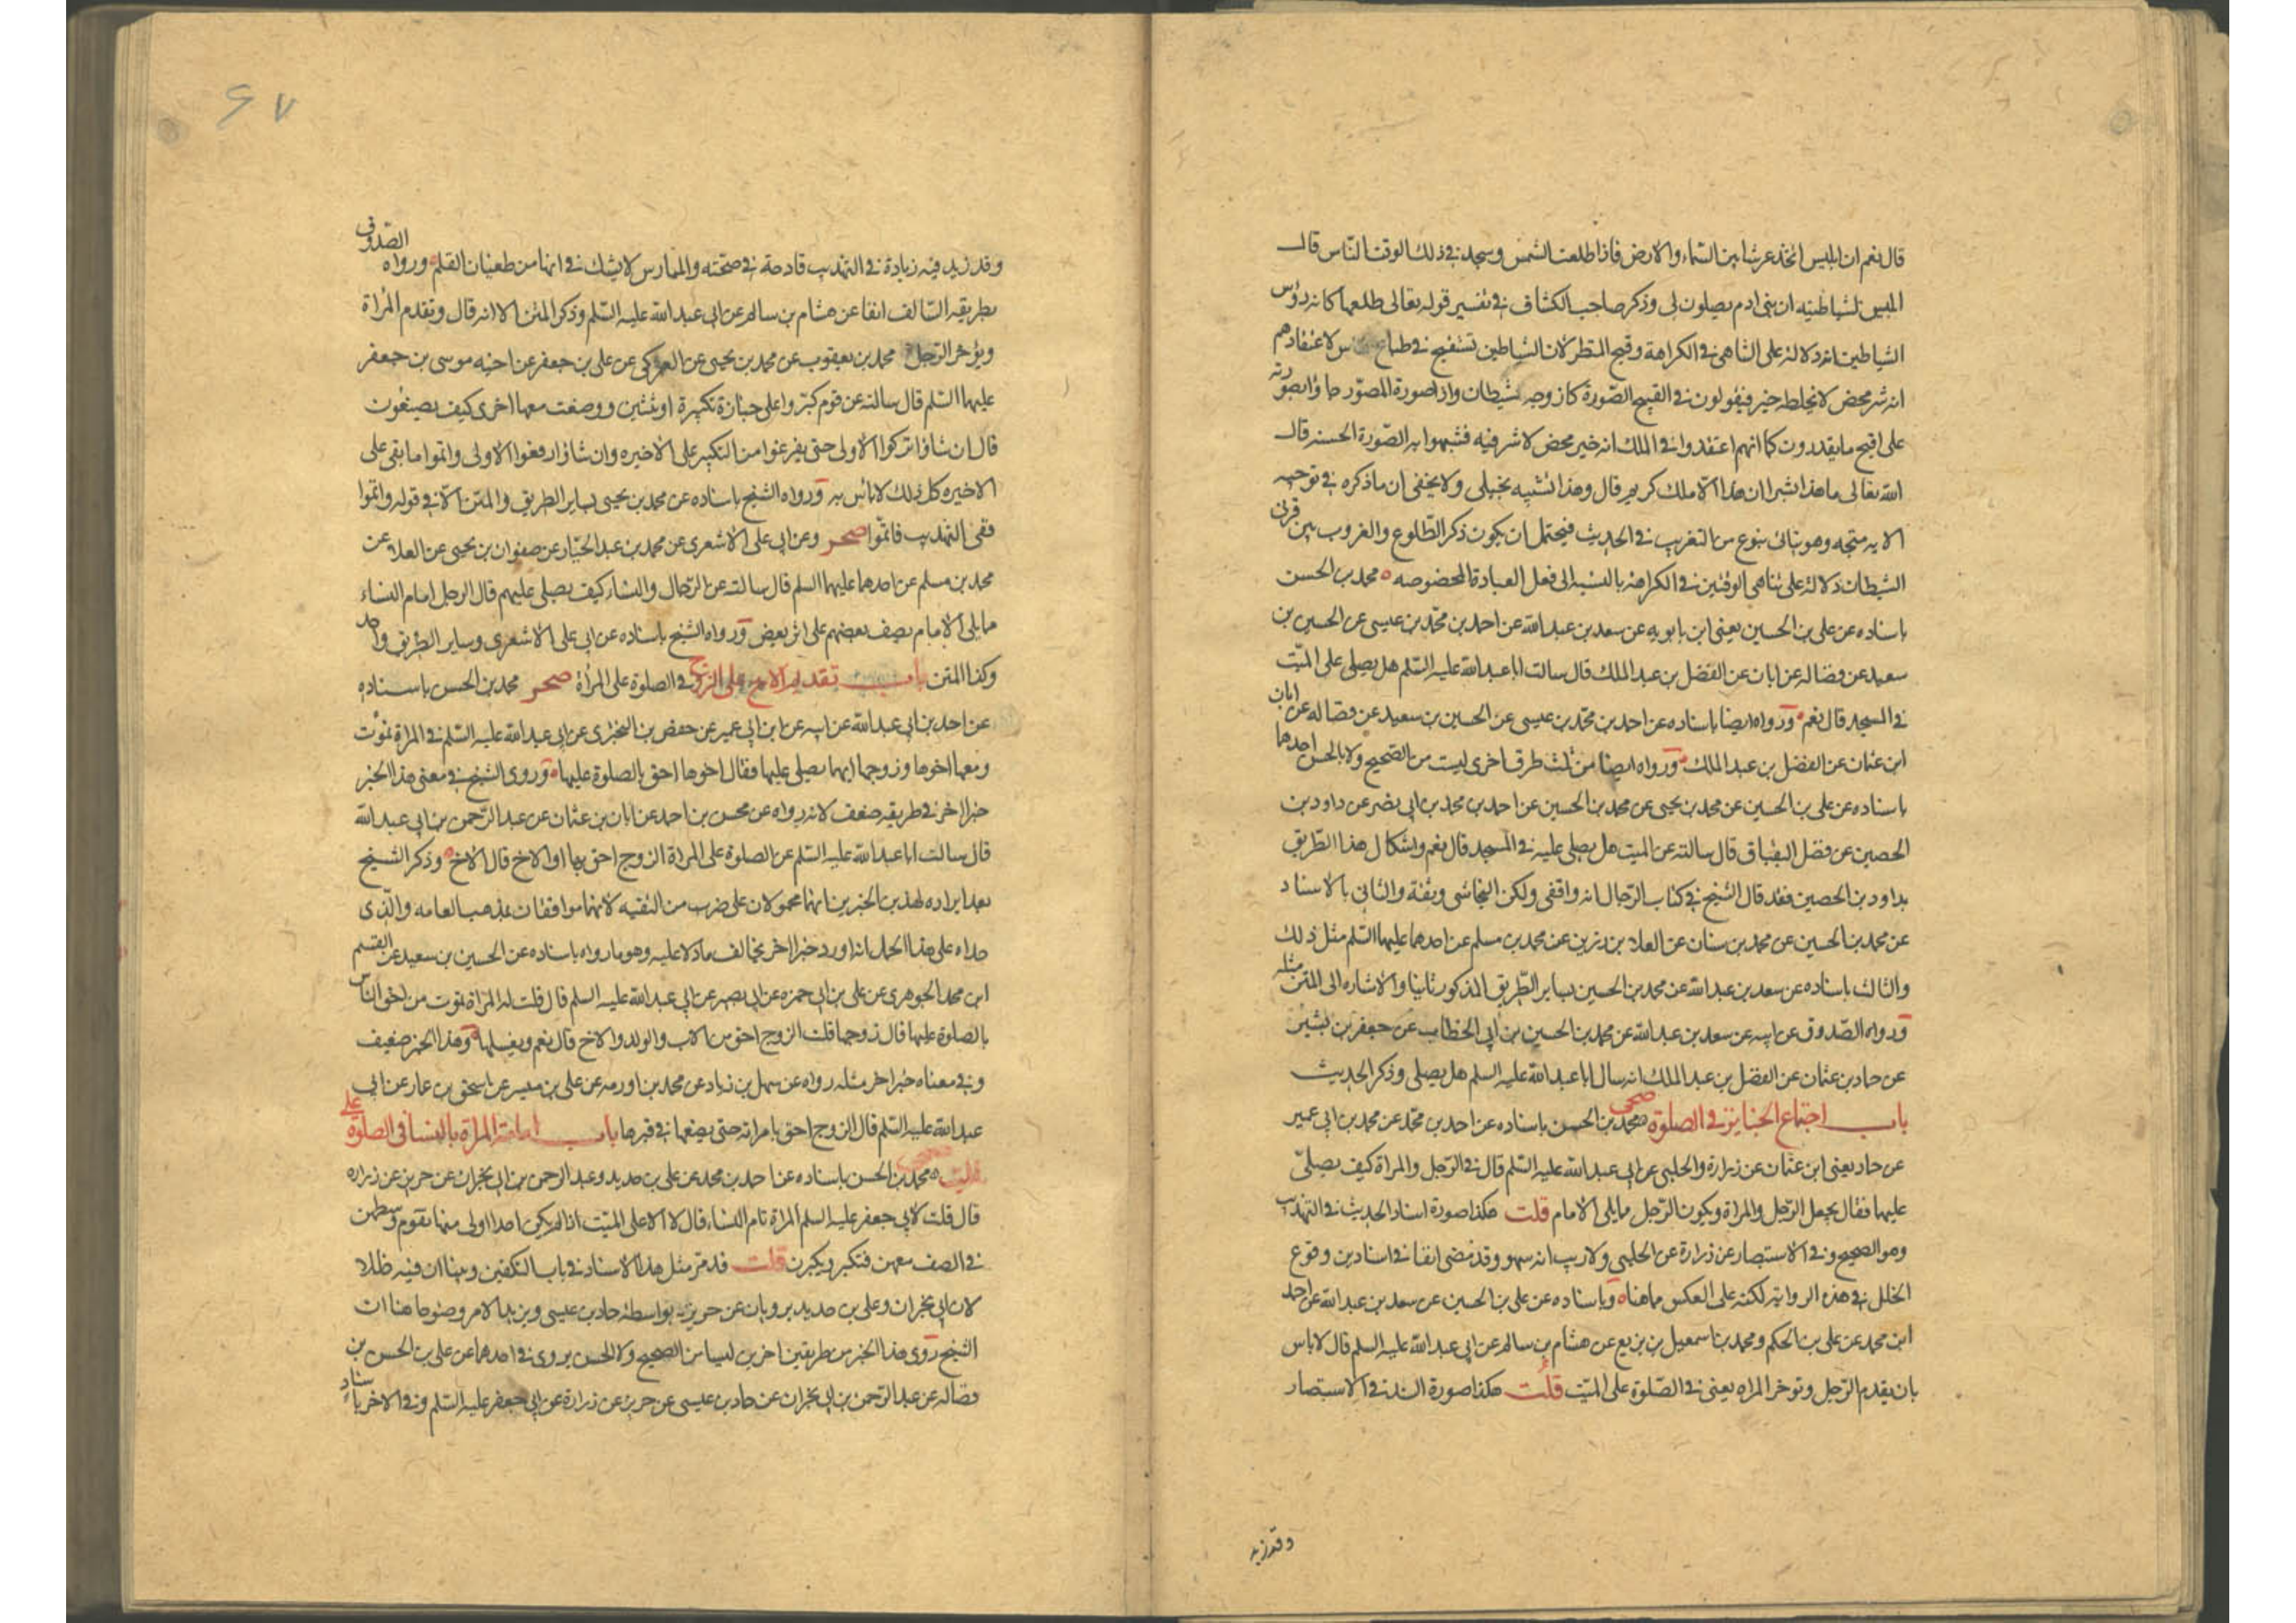 قال نعم ان ابليس اتخذ عرشا بين السماء والارض فاذا طلعت الشمس وسجد في ذلك الوقت الناس قال
ابليس لشياطينه ان بني ادم يصلون لي وذكر صاحب الكشاف في تفسير قوله تعالى طلعها كانه رؤس
الشياطين انه دلالة على التناهي في الكراهة وقبح المنظر لان الشياطين تستقبح في طباع الناس لاعتقادهم
انه شر محض لا يخلطه خير فيقولون في القبيح الصورة كانه وجه شيطان واذا صوره المصور جاؤا بصورته
على اقبح ما يقدرون كما انهم اعتقدوا في الملك انه خير محض لا شر فيه فشبهوا به الصورة الحسنه قال
الله تعالى ما هذا بشرا ان هذا الا ملك كريم قال وهذا تشبيه تخييلي ولا يخفى ان ما ذكره في توجيه
الايه متجه وهو يتاتى بنوع من التقريب في الحديث فيحتمل ان يكون ذكر الطلوع والغروب بين قرني
الشيطان دلالة على تناهي الوقتين في الكراهة بالنسبة الى فعل العبادة المخصوصه ٥ محمد بن الحسن
باسناده عن علي بن الحسين يعني ابن بابويه عن سعد بن عبد الله عن احمد بن محمد بن عيسى عن الحسين بن
سعيد عن فضاله عن ابان عن الفضل بن عبد الملك قال سالت ابا عبد الله عليه السلم هل يصلى على الميت
في المسجد قال نعم ٥ ورواه ايضا باسناده عن احمد بن محمد بن عيسى عن الحسين بن سعيد عن فضاله عن ابان
ابن عثمان عن الفضل بن عبد الملك ٥ ورواه ايضا من ثلث طرق اخرى ليست من الصحيح ولا الحسن احدها
باسناده عن علي بن الحسين عن محمد بن يحيى عن محمد بن الحسين عن احمد بن محمد بن ابي نصر عن داود بن
الحصين عن فضل البقباق قال سالته عن الميت هل يصلى عليه في المسجد قال نعم واشكال هذا الطريق
بداود بن الحصين فقد قال الشيخ في كتاب الرجال انه واقفي ولكن النجاشي وثقه والثاني بالاسناد
عن محمد بن الحسين عن محمد بن سنان عن العلاء بن رزين عن محمد بن مسلم عن احدهما عليهما السلم مثل ذلك
والثالث باسناده عن سعد بن عبد الله عن محمد بن الحسين بساير الطريق المذكور ثانيا والاشاره الى المتن بمثله
ورواه الصدوق عن ابيه عن سعد بن عبد الله عن محمد بن الحسين بن ابي الخطاب عن جعفر بن بشير
عن حماد بن عثمان عن الفضل بن عبد الملك انه سال ابا عبد الله عليه السلم هل يصلى وذكر الحديث
باب اجتماع الجنايز في الصلوة صحى محمد بن الحسن باسناده عن احمد بن محمد عن محمد بن ابي عمير
عن حماد يعني ابن عثمان عن زرارة والحلبي عن ابي عبد الله عليه السلم قال في الرجل والمراة كيف يصلى
عليهما فقال يجعل الرجل والمراة ويكون الرجل مما يلي الامام قلت هكذا صورة اسناد الحديث في التهذيب
وهو الصحيح وفي الاستبصار عن زرارة عن الحلبي ولا ريب انه سهو وقد مضى انفا في اسنادين وقوع
الخلل في هذه الرواية لكنه على العكس مما هنا ٥ وباسناده عن علي بن الحسين عن سعد بن عبد الله عن احمد
ابن محمد عن علي بن الحكم ومحمد بن اسمعيل بن بزيع عن هشام بن سالم عن ابي عبد الله عليه السلم قال لا باس
بان يقدم الرجل وتوخر المراه يعني في الصلوة على الميت قلت هكذا صورة السند في الاستبصار
وقد زيد
٦٧
وقد زيد فيه زيادة في التهذيب قادحة في صحته والممارس لا يشك في انها من طغيان القلم ورواه الصدوق
بطريقه السالف انفا عن هشام بن سالم عن ابي عبد الله عليه السلم وذكر المتن الا انه قال وتقدم المراة
ويؤخر الرجل محمد بن يعقوب عن محمد بن يحيى عن العمركي عن علي بن جعفر عن اخيه موسى بن جعفر
عليهما السلم قال سالته عن قوم كبروا على جنازة تكبيرة او ثنتين ووضعت معها اخرى كيف يصنعون
قال ان شاؤا تركوا الاولى حتى يفرغوا من التكبير على الاخيره وان شاؤا رفعوا الاولى واتموا ما بقي على
الاخيره كل ذلك لا باس به ورواه الشيخ باسناده عن محمد بن يحيى بساير الطريق والمتن الا في قوله واتموا
ففي التهذيب فاتموا صحر وعن ابي علي الاشعري عن محمد بن عبد الجبار عن صفوان بن يحيى عن العلاء عن
محمد بن مسلم عن احدهما عليهما السلم قال سالته عن الرجال والنساء كيف يصلى عليهم قال الرجل امام النساء
مما يلي الامام يصف بعضهم على اثر بعض ورواه الشيخ باسناده عن ابي علي الاشعري وساير الطريق واحد
وكذا المتن باب تقديم الاخ على الزوج في الصلوة على المرأة صحر محمد بن الحسن باسناده
عن احمد بن ابي عبد الله عن ابيه عن ابن ابي عمير عن حفص بن البختري عن ابي عبد الله عليه السلم في المراة تموت
ومعها اخوها وزوجها ايهما يصلي عليها فقال اخوها احق بالصلوة عليها ٥ وروى الشيخ في معنى هذا الخبر
خبرا اخر في طريقه ضعف لانه رواه عن محسن بن احمد عن ابان بن عثمان عن عبد الرحمن بن ابي عبد الله
قال سالت ابا عبد الله عليه السلم عن الصلوة على المراة الزوج احق بها او الاخ قال الاخ ٥ وذكر الشيخ
بعد ايراده لهذين الخبرين انهما محمولان على ضرب من التقيه لانهما موافقان لمذهب العامه والذي
حداه على هذا الحمل انه اورد خبرا اخر يخالف ما دلا عليه وهو ما رواه باسناده عن الحسين بن سعيد عن القسم
ابن محمد الجوهري عن علي بن ابي حمزه عن ابي بصير عن ابي عبد الله عليه السلم قال قلت له المراة تموت من احق الناس
بالصلوة عليها قال زوجها قلت الزوج احق من الاب والولد والاخ قال نعم ويغسلها ٥ وهذا الخبر ضعيف
وفي معناه خبر اخر مثله رواه عن سهل بن زياد عن محمد بن اورمه عن علي بن ميسر عن اسحق بن عمار عن ابي
عبد الله عليه السلم قال الزوج احق بامراته حتى يضعها في قبرها باب امامة المراة بالنسا في الصلوة على
الميت محمد بن الحسن باسناده عن احمد بن محمد عن علي بن حديد وعبد الرحمن بن ابي نجران عن حريز عن زراره
قال قلت لابي جعفر عليه السلم المراة تام النساء قال لا الا على الميت اذا لم يكن احدا اولى منها تقوم وسطهن
في الصف معهن فتكبر ويكبرن قلت قد مر مثل هذا الاسناد في باب التكفين وبينا ان فيه خللا
لان ابن ابي نجران وعلي بن حديد يرويان عن حريز بواسطة حماد بن عيسى ويزيد الامر وضوحا هنا ان
الشيخ روى هذا الخبر من طريقين اخرين ليسا من الصحيح ولا الحسن يروي في احدهما عن علي بن الحسن بن
فضاله عن عبد الرحمن بن ابي نجران عن حماد بن عيسى عن حريز عن زرارة عن ابي جعفر عليه السلم وفي الاخر باسناد